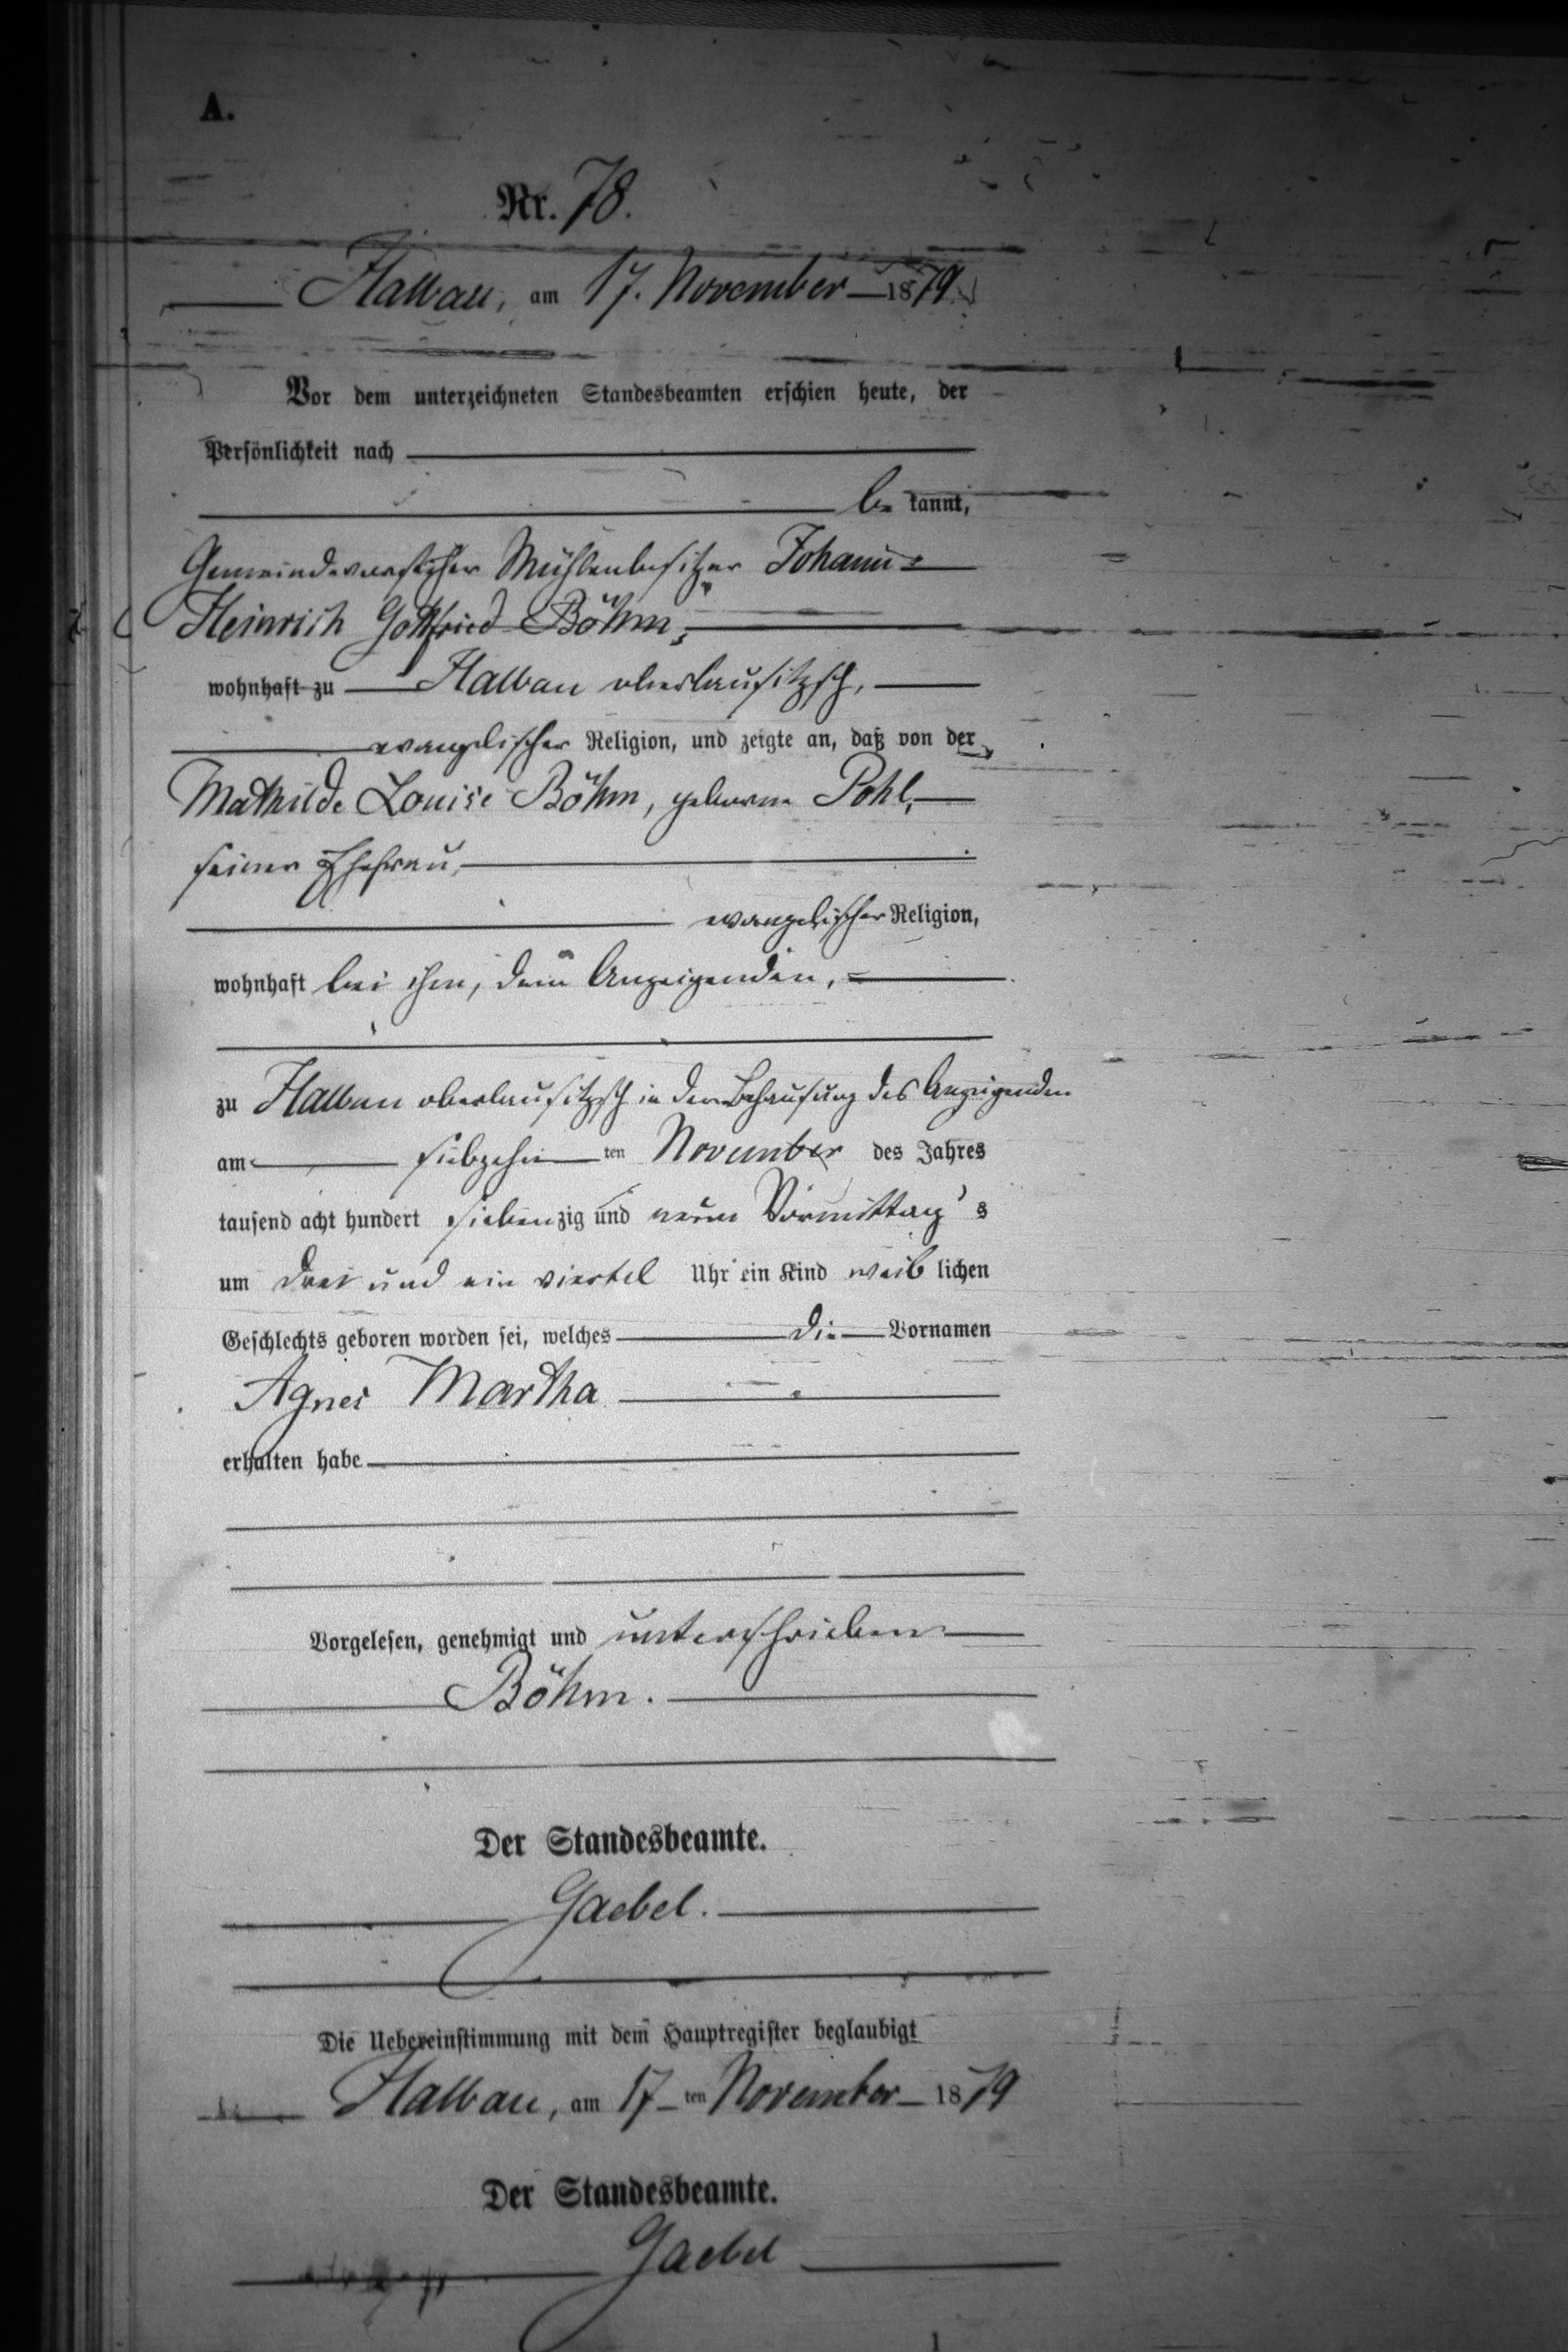 A.
Nr. 78.
Halbau, am 17. November 1879
Vor dem unterzeichneten Standesbeamten erschien heute, der
Persönlichkeit nach
be kannt,
Gemeindevorsteher Mühlenbesitzer Johann
Heinrich Gottfried Böhm,
wohnhaft zu Halbau oberlausitzsch,
evangelischer Religion, und zeigte an, daß von der
Mathilde Louise Böhm, geborne Pohl,
seiner Ehefrau,
evangelischer Religion,
wohnhaft bei ihm, dem Anzeigenden,
zu Halbau oberlausitzsch in der Behausung des Anzeigenden
am siebzehn ten November des Jahres
tausend acht hundert siebenzig und neun Vormittag's
um drei und ein viertel Uhr ein Kind weib lichen
Geschlechts geboren worden sei, welches die Vornamen
Agnes Martha
erhalten habe
Vorgelesen, genehmigt und unterschrieben
Böhm.
Der Standesbeamte.
Gaebel.
Die Uebereinstimmung mit dem Hauptregister beglaubigt
Halbau, am 17 ten November 1879
Der Standesbeamte.
Gaebel